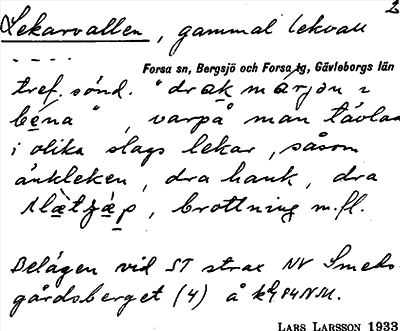 2
Lekarvallen, gammal lekvall
- - - -
Forsa sn, Bergsjö och Forsa tg, Gävleborgs län
träf. sönd. "drak märjon 2
béna", varpå man tävlade
i olika slags lekar, såsom
änkleken, dra hank, dra
brottning m.fl.
Belägen vid ST strax NV Smeds-
gårdsberget (4) å
LARS LARSSON 1933